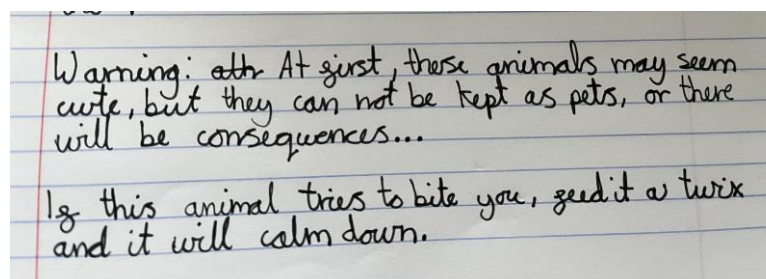 Warning: At first, these animals may seem
cute, but they can not be kept as pets, or there
will be consequences...
If this animal tries to bite you, feed it a twix
and it will calm down.